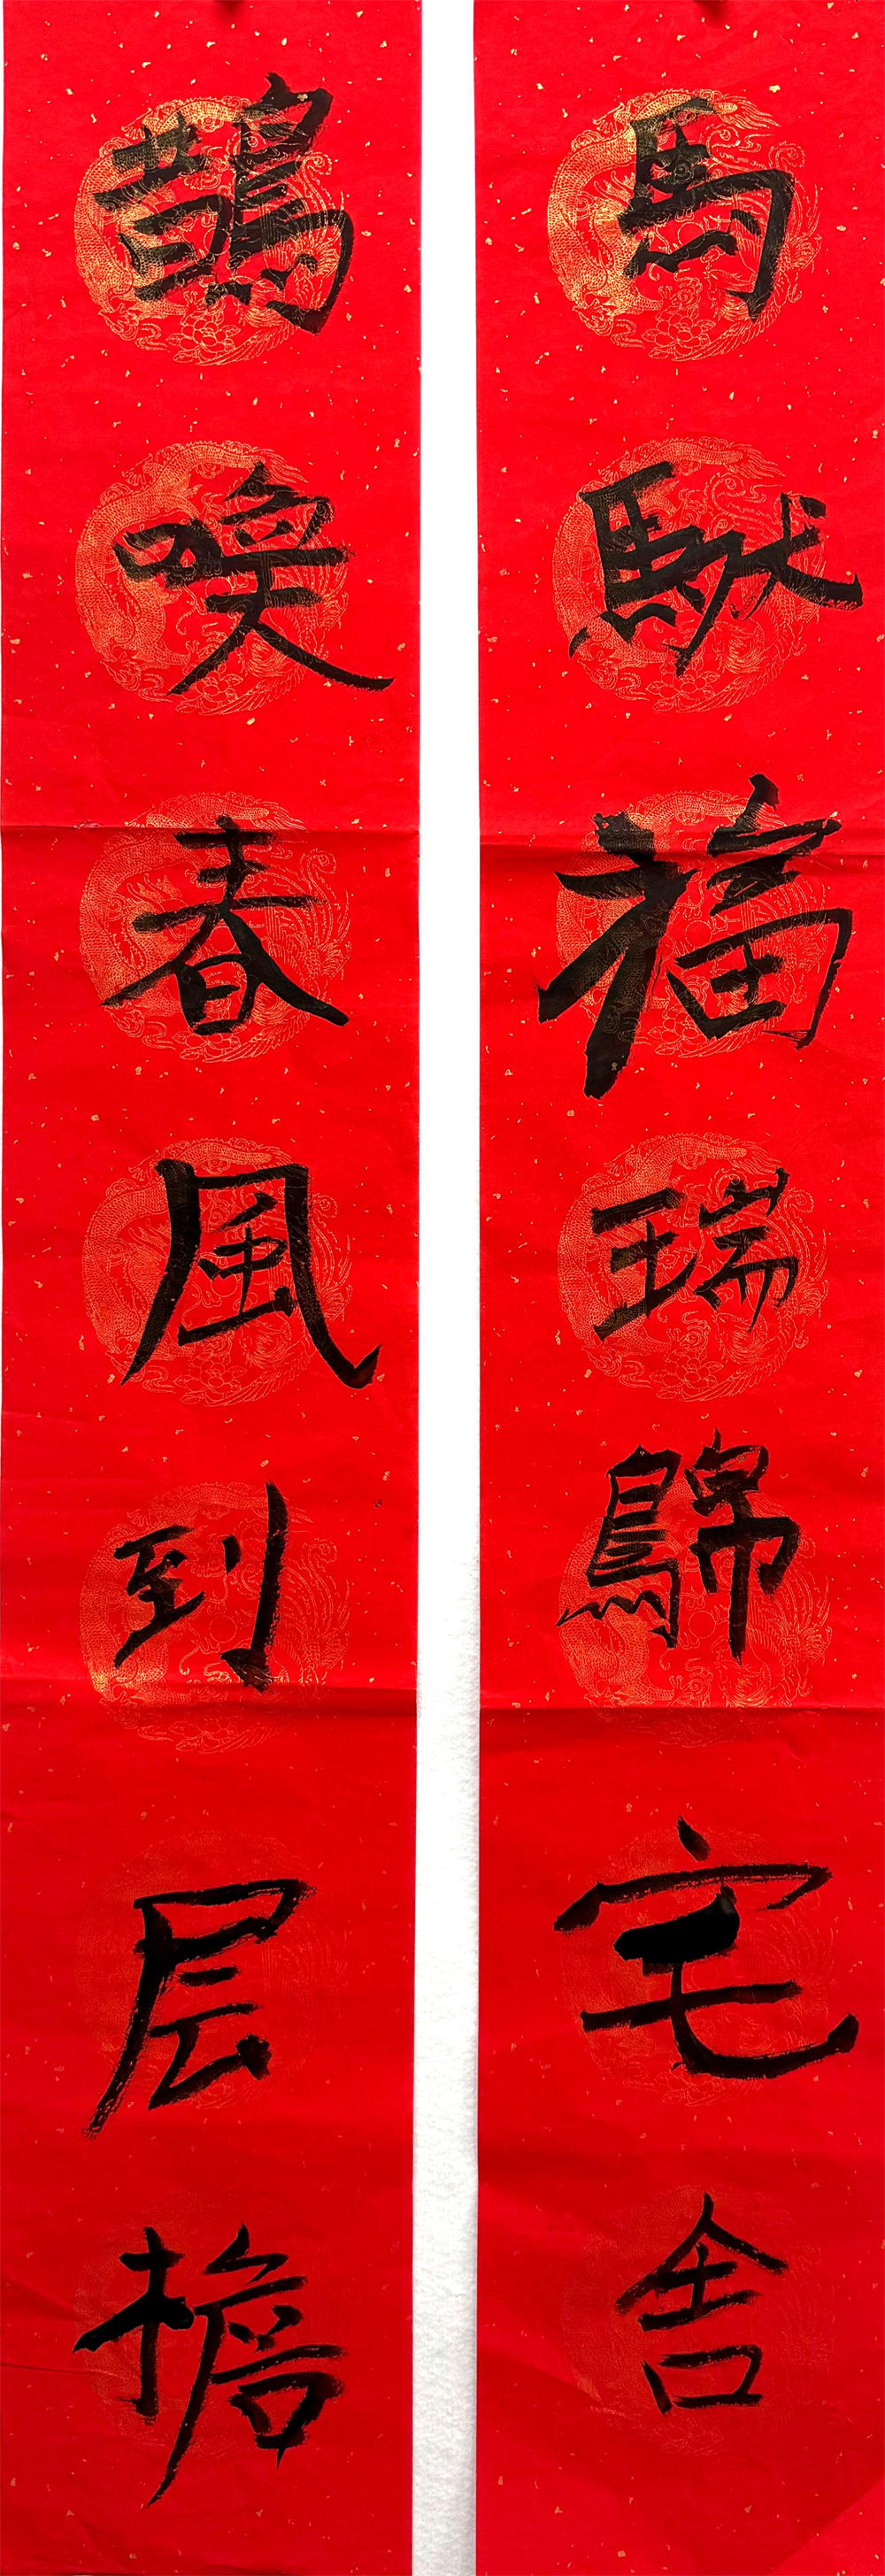 馬馱福瑞歸宅舍
鵲喚春風到层檐